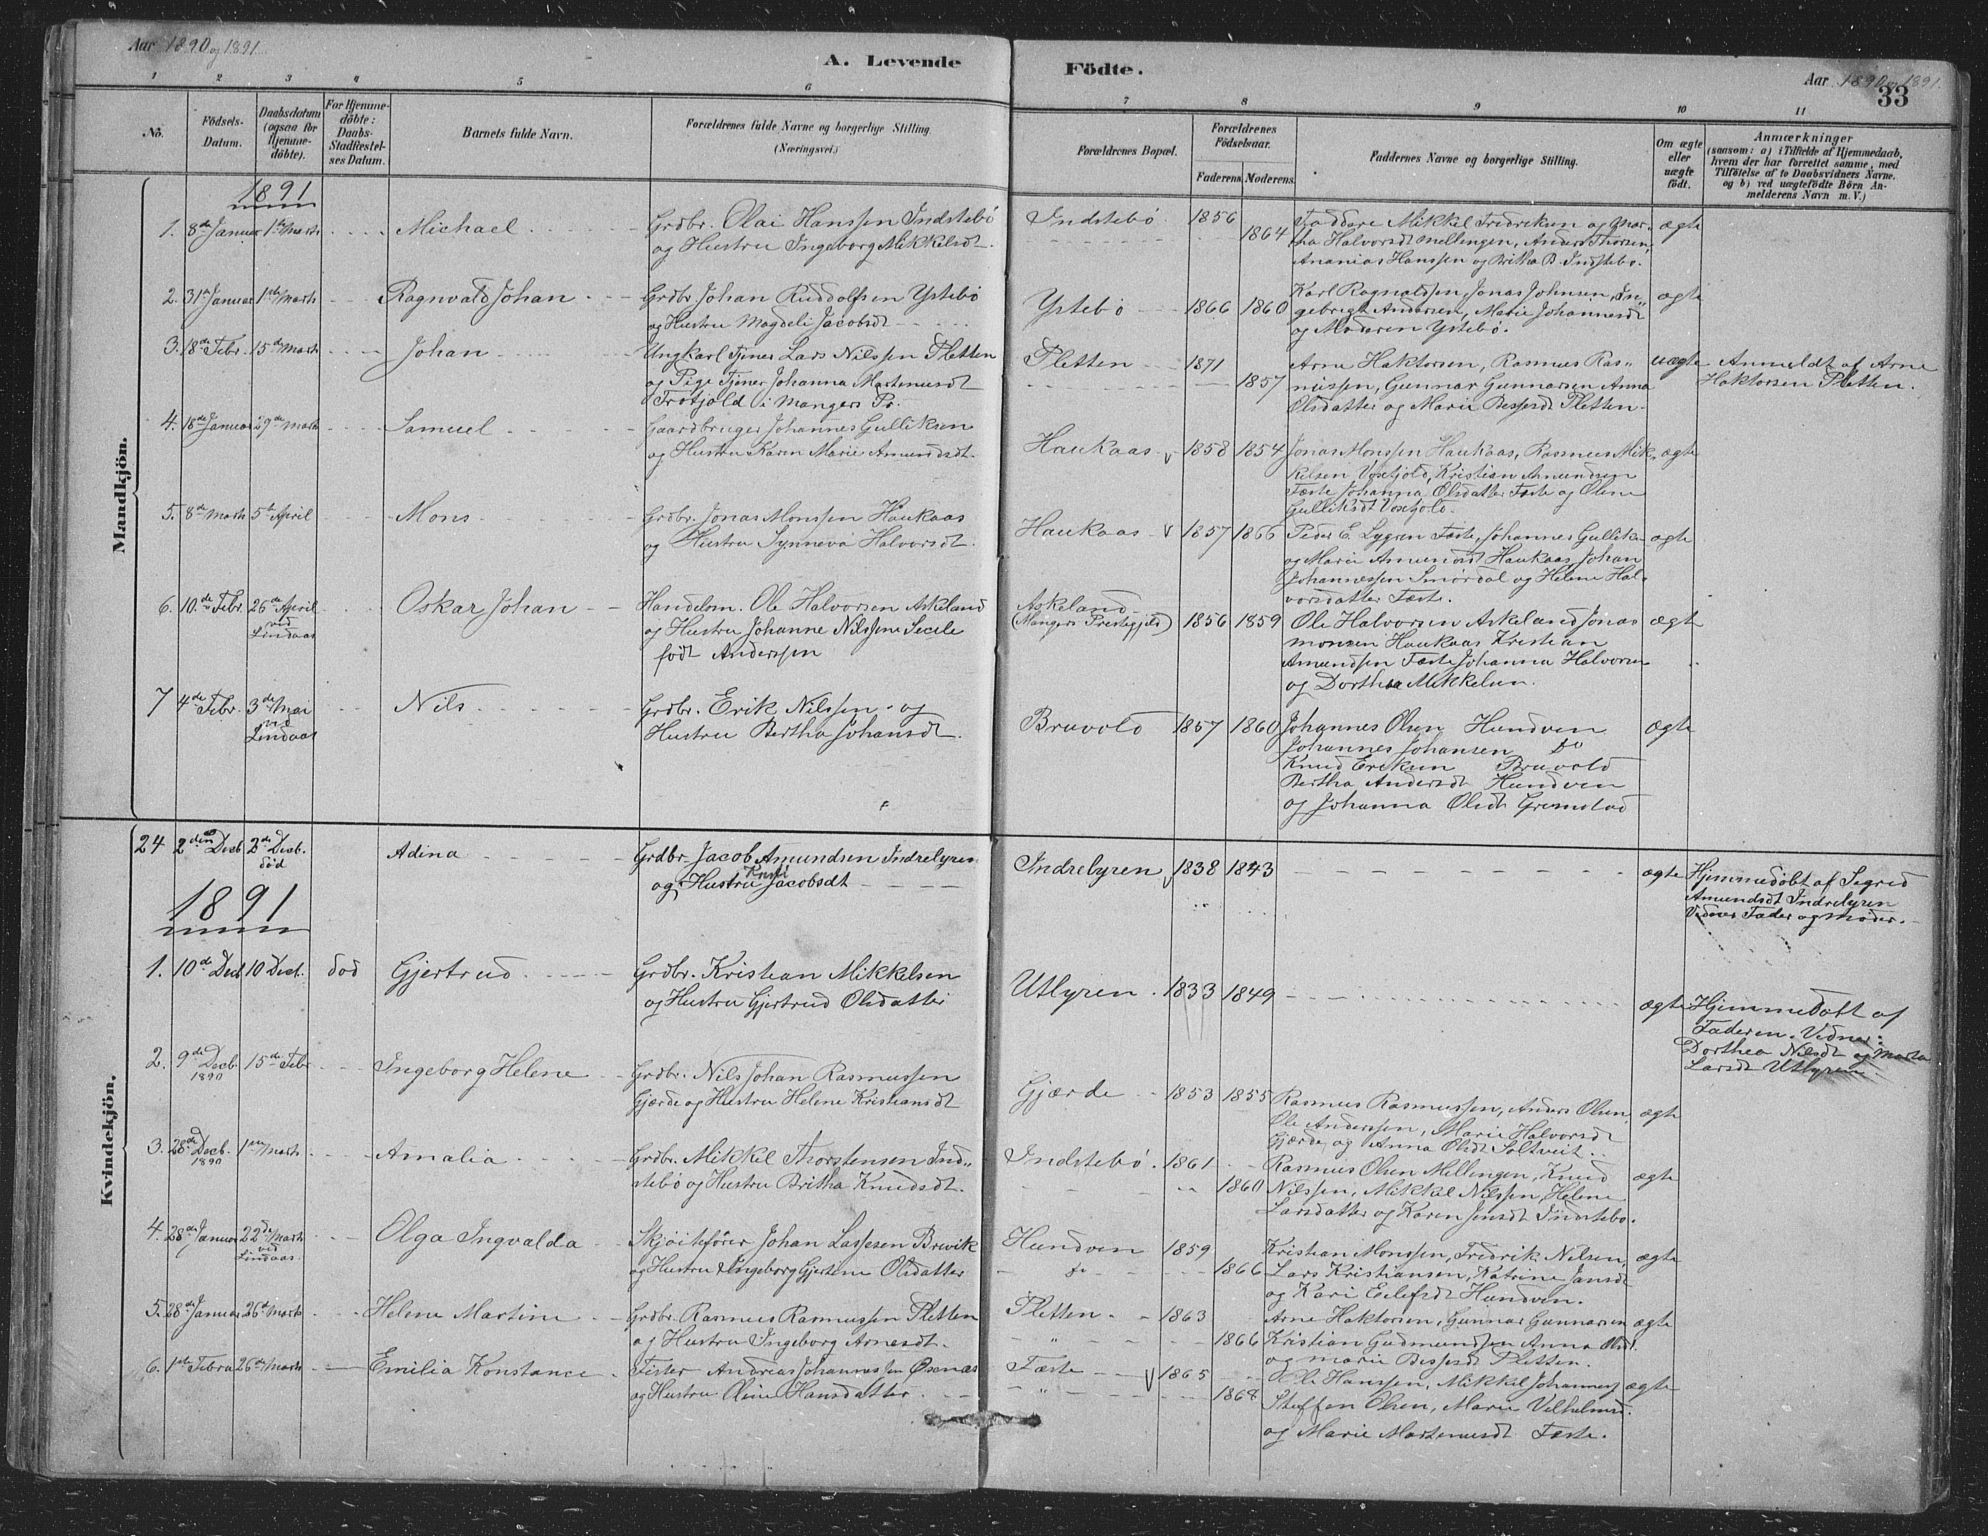 Aar 1890 og 1891.
A. Levende Födte.
Aar 1890 og 1891.
33
1 2 3 4 5 6 7 8 9 10 11
No.
Födsels-Datum.
Daabsdatum (ogsaa for Hjemme-döbte).
For Hjemme-döbte: Daabs-Stadfæstel-ses Datum.
Barnets fulde Navn.
Forældrenes fulde Navne og borgerlige Stilling. (Næringsvei.)
Forældrenes Bopæl.
Forældrenes Födselsaar.
Faderens. Moderens.
Faddernes Navne og borgerlige Stilling.
Om ægte eller uægte födt.
Anmærkninger
(saasom: a) i Tilfælde af Hjemmedaab, hvem der har forrettet samme, med Tilföielse af to Daabsvidners Navne. og b) ved uægtefödte Börn An-melderens Navn m. V.)
Mandkjön.
1891
1. 8de Januar 1ste Marts Michael
Grdbr. Olai Hanssen Indstebö
og Hustru Ingeborg Mikkelsdt.
Indstebö 1856 1864
Faddere Mikkel Fredriksen og Mar-
tha Halvorsdt Mellingen, Anders Thorsen,
Ananias Hanssen og Britha B. Indstebö.
ægte
2. 31te Januar 1ste Marts Ragnvald Johan
Grdbr. Johan Ruddolfsen Ystebö
og Hustru Magdeli Jacobsdt
Ystebö 1866 1860
Karl Ragnvaldsen, Jonas Johnsen, In-
gebrigt Andersen, Marie Johannesdt
og Moderen Ystebö.
ægte
3. 18de Febr. 15de Marts Johan
Ungkarl Tjener Lars Nilssen Pletten
og Pige Tjener Johanna Martenusdt
i Mangers Pr.
Pletten 1871 1857
Arne Haktorsen, Rasmus Ras-
mussen, Gunnar Gunnarsen Anna
Olsdatter og Marie Bessesdt Pletten.
uægte
Anmeldt af Arne
Haktorsen Pletten.
4. 18de Januar 29de Marts Samuel
Gaardbruger Johannes Gulliksen
og Hustru Karen Marie Amundsdt.
Haukaas 1858 1854
Jonas Monssen Haukaas, Rasmus Mik-
kelsen Voxtjold, Kristian Amundsen
Fæste Johanna Olsdatter Fæste og Olene
Gulliksdt Voxtjold.
ægte
5. 8de Marts 5te April Mons
Grdbr. Jonas Monssen Haukaas
og Hustru Synneva Halvorsdt.
Haukaas 1857 1866
Peder E. Lygren Fæste, Johannes Gulliks-
og Marie Amundsdt Haukaas, Johan
Johannessen Smördal og Helene Hal-
vorsdatter Fæste.
ægte
6. 10de Febr. 26de April ved Lindaas Oskar Johan
Handelsm. Ole Halvorsen Askeland
og Hustru Johanne Nilssine Secile
født Anderssen
Askeland
(Mangers Prestegjeld) 1856 1859
Ole Halvorsen Askeland Jonas
Monsen Haukaas Kristian
Amundsen Fæste Johanna Halvorsen
og Dorthea Mikkelsen.
ægte
7 4de Febr. 3de Mai ved Lindaas Nils
Grdbr. Erik Nilssen og
Hustru Bertha Johansdt.
Bruvold 1857 1860
Johannes Olsen Hundven
Johannes Johansen do
Knud Eriksen Bruvold
Bertha Andersdt Hundven
og Johanna Olsdt Gremstad
ægte
Kvindekjön.
24 2den Decb. 2de Decb. död Adina
Grdbr. Jacob Amundsen Indrelyren
og Hustru Kristi Jacobsdt
Indrelyren 1838 1843
ægte
Hjemmedøbt af Sigrid
Amundsdt Indrelyren
Vidner Fader og Moder.
1891
1. 10de Decb 10 Decb. død Gjertrud
Grdbr. Kristian Mikkelsen
og Hustru Gjertrud Olsdatter
Utlyren. 1833 1849
ægte
Hjemmedøbt af
Faderen. Vidner:
Dorthea Nilsdt og Marta
Larsdt Utlyren.
2. 9de Decb. 1890 15de Febr Ingeborg Helene
Grdbr. Nils Johan Rasmussen
Gjærde og Hustru Helene Kristiansdt
Gjærde 1853 1855
Rasmus Rasmussen, Anders Olsen,
Ole Anderssen, Marie Halvorsdt
Gjærde og Anna Olsdt Soltveit.
ægte
3. 28de Decb. 1890 1ste Marts Amalia
Grdbr. Mikkel Thorstensen Ind-
stebö og Hustru Britha Knudsdt.
Indstebö 1861 1860
Rasmus Olsen Mellingen, Knud
Nilssen, Mikkel Nilssen, Helene
Larsdatter og Karen Jensdt Indstebö.
ægte
4. 28de Januar 22de Marts ved Lindaas Olga Ingvalda
Skjøitefører Johan Lassesen Brevik
og Hustru Ingeborg Gjertine Olsdatter
Hundven 1859 1866
Kristian Monssen, Fredrik Nilsen,
Lars Kristiansen, Katrine Jansdt
og Kari Eilefsdt Hundven.
ægte
5. 28de Januar 26de Marts Helene Martine
Grdbr. Rasmus Rasmussen Pletten
og Hustru Ingeborg Arnesdt.
Pletten 1863 1866
Arne Haktorsen, Gunnar Gunnarsen
Kristian Gudmundsen Anna Olsd.
og Marie Bessesdt Pletten.
ægte
6. 1ste Febru 26de Marts Emilia Konstance
Fisker Andreas Johannessen Øxenæs
og Hustru Oline Hansdatter.
Fæste 1865 1868
Ole Hanssen, Mikkel Johannes
Steffen Olsen, Marie Vilhelmsd.
og Marie Martenusdt Fæste.
ægte